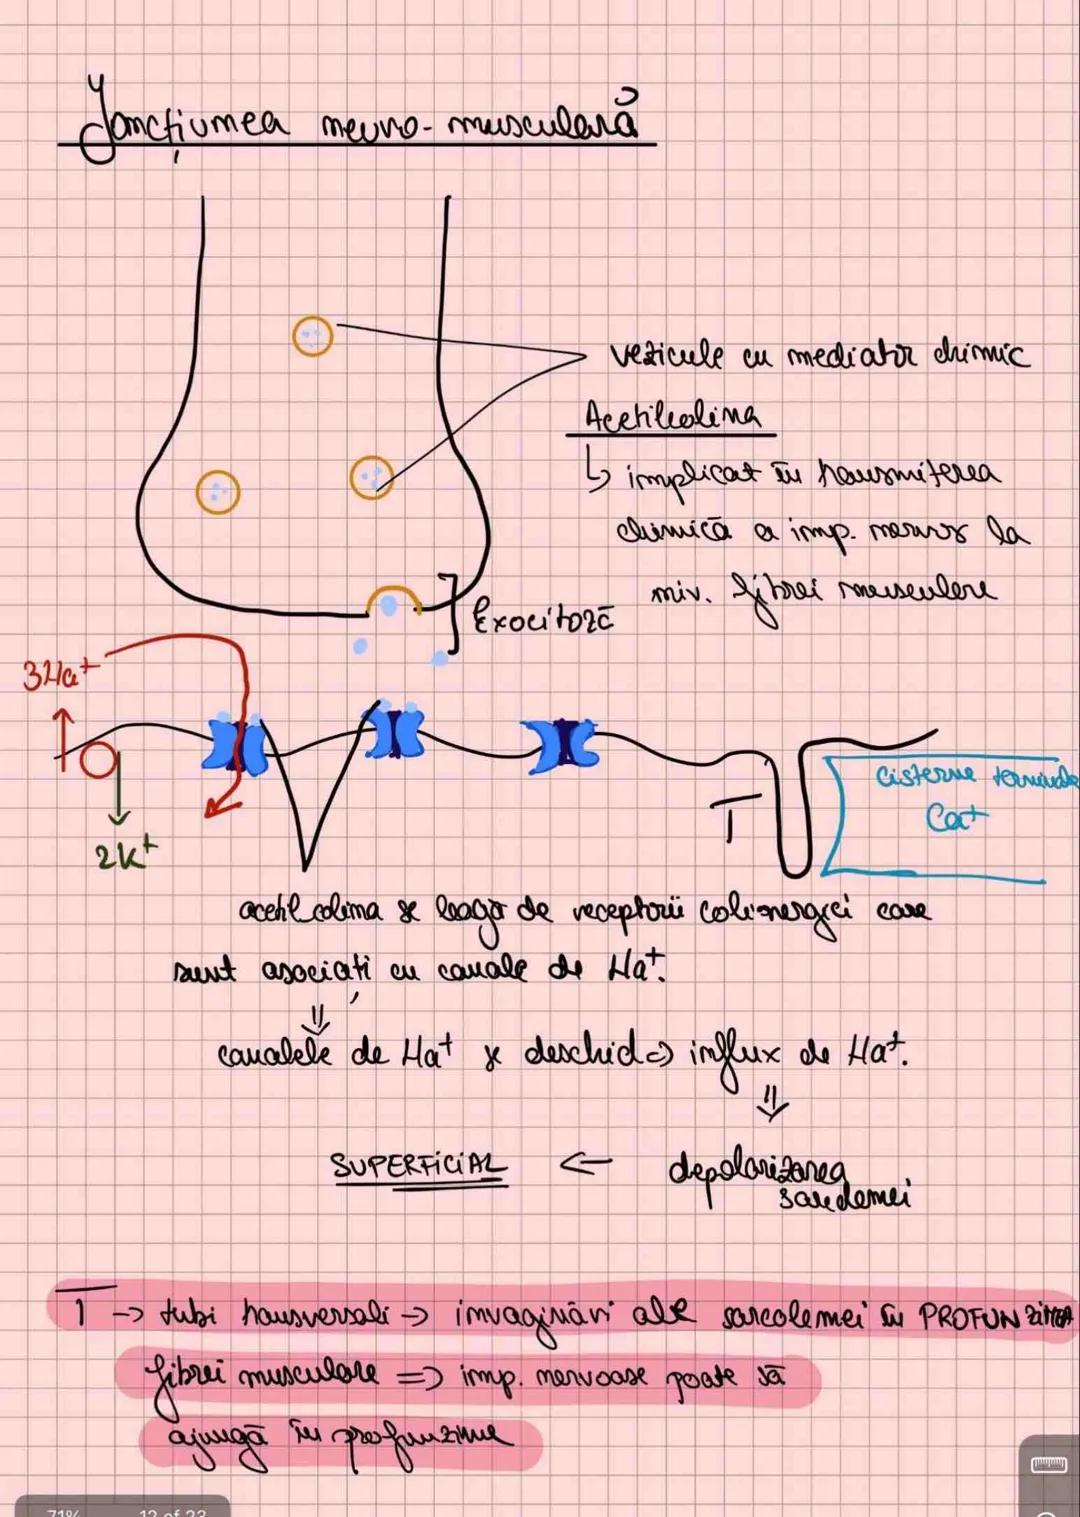 Joncțiunea neuro-musculară
vezicule cu mediator chimic
Acetilcolina
↳ implicat în transmiterea
chimică a imp. nervos la
niv. fibrei musculare
Exocitoză
3Na⁺
2K⁺
T
cisterne terminale
Ca⁺
acetilcolina se leagă de receptorii colinergici care
sunt asociați cu canale de Na⁺.
⇓
canalele de Na⁺ se deschid => influx de Na⁺.
⇓
SUPERFICIAL ← depolarizarea
sarcolemei
T -> tubi transversali -> invaginări ale sarcolemei în PROFUNZIMEA
fibrei musculare => imp. nervoase poate să
ajungă în profunzime
71%
12 of 23